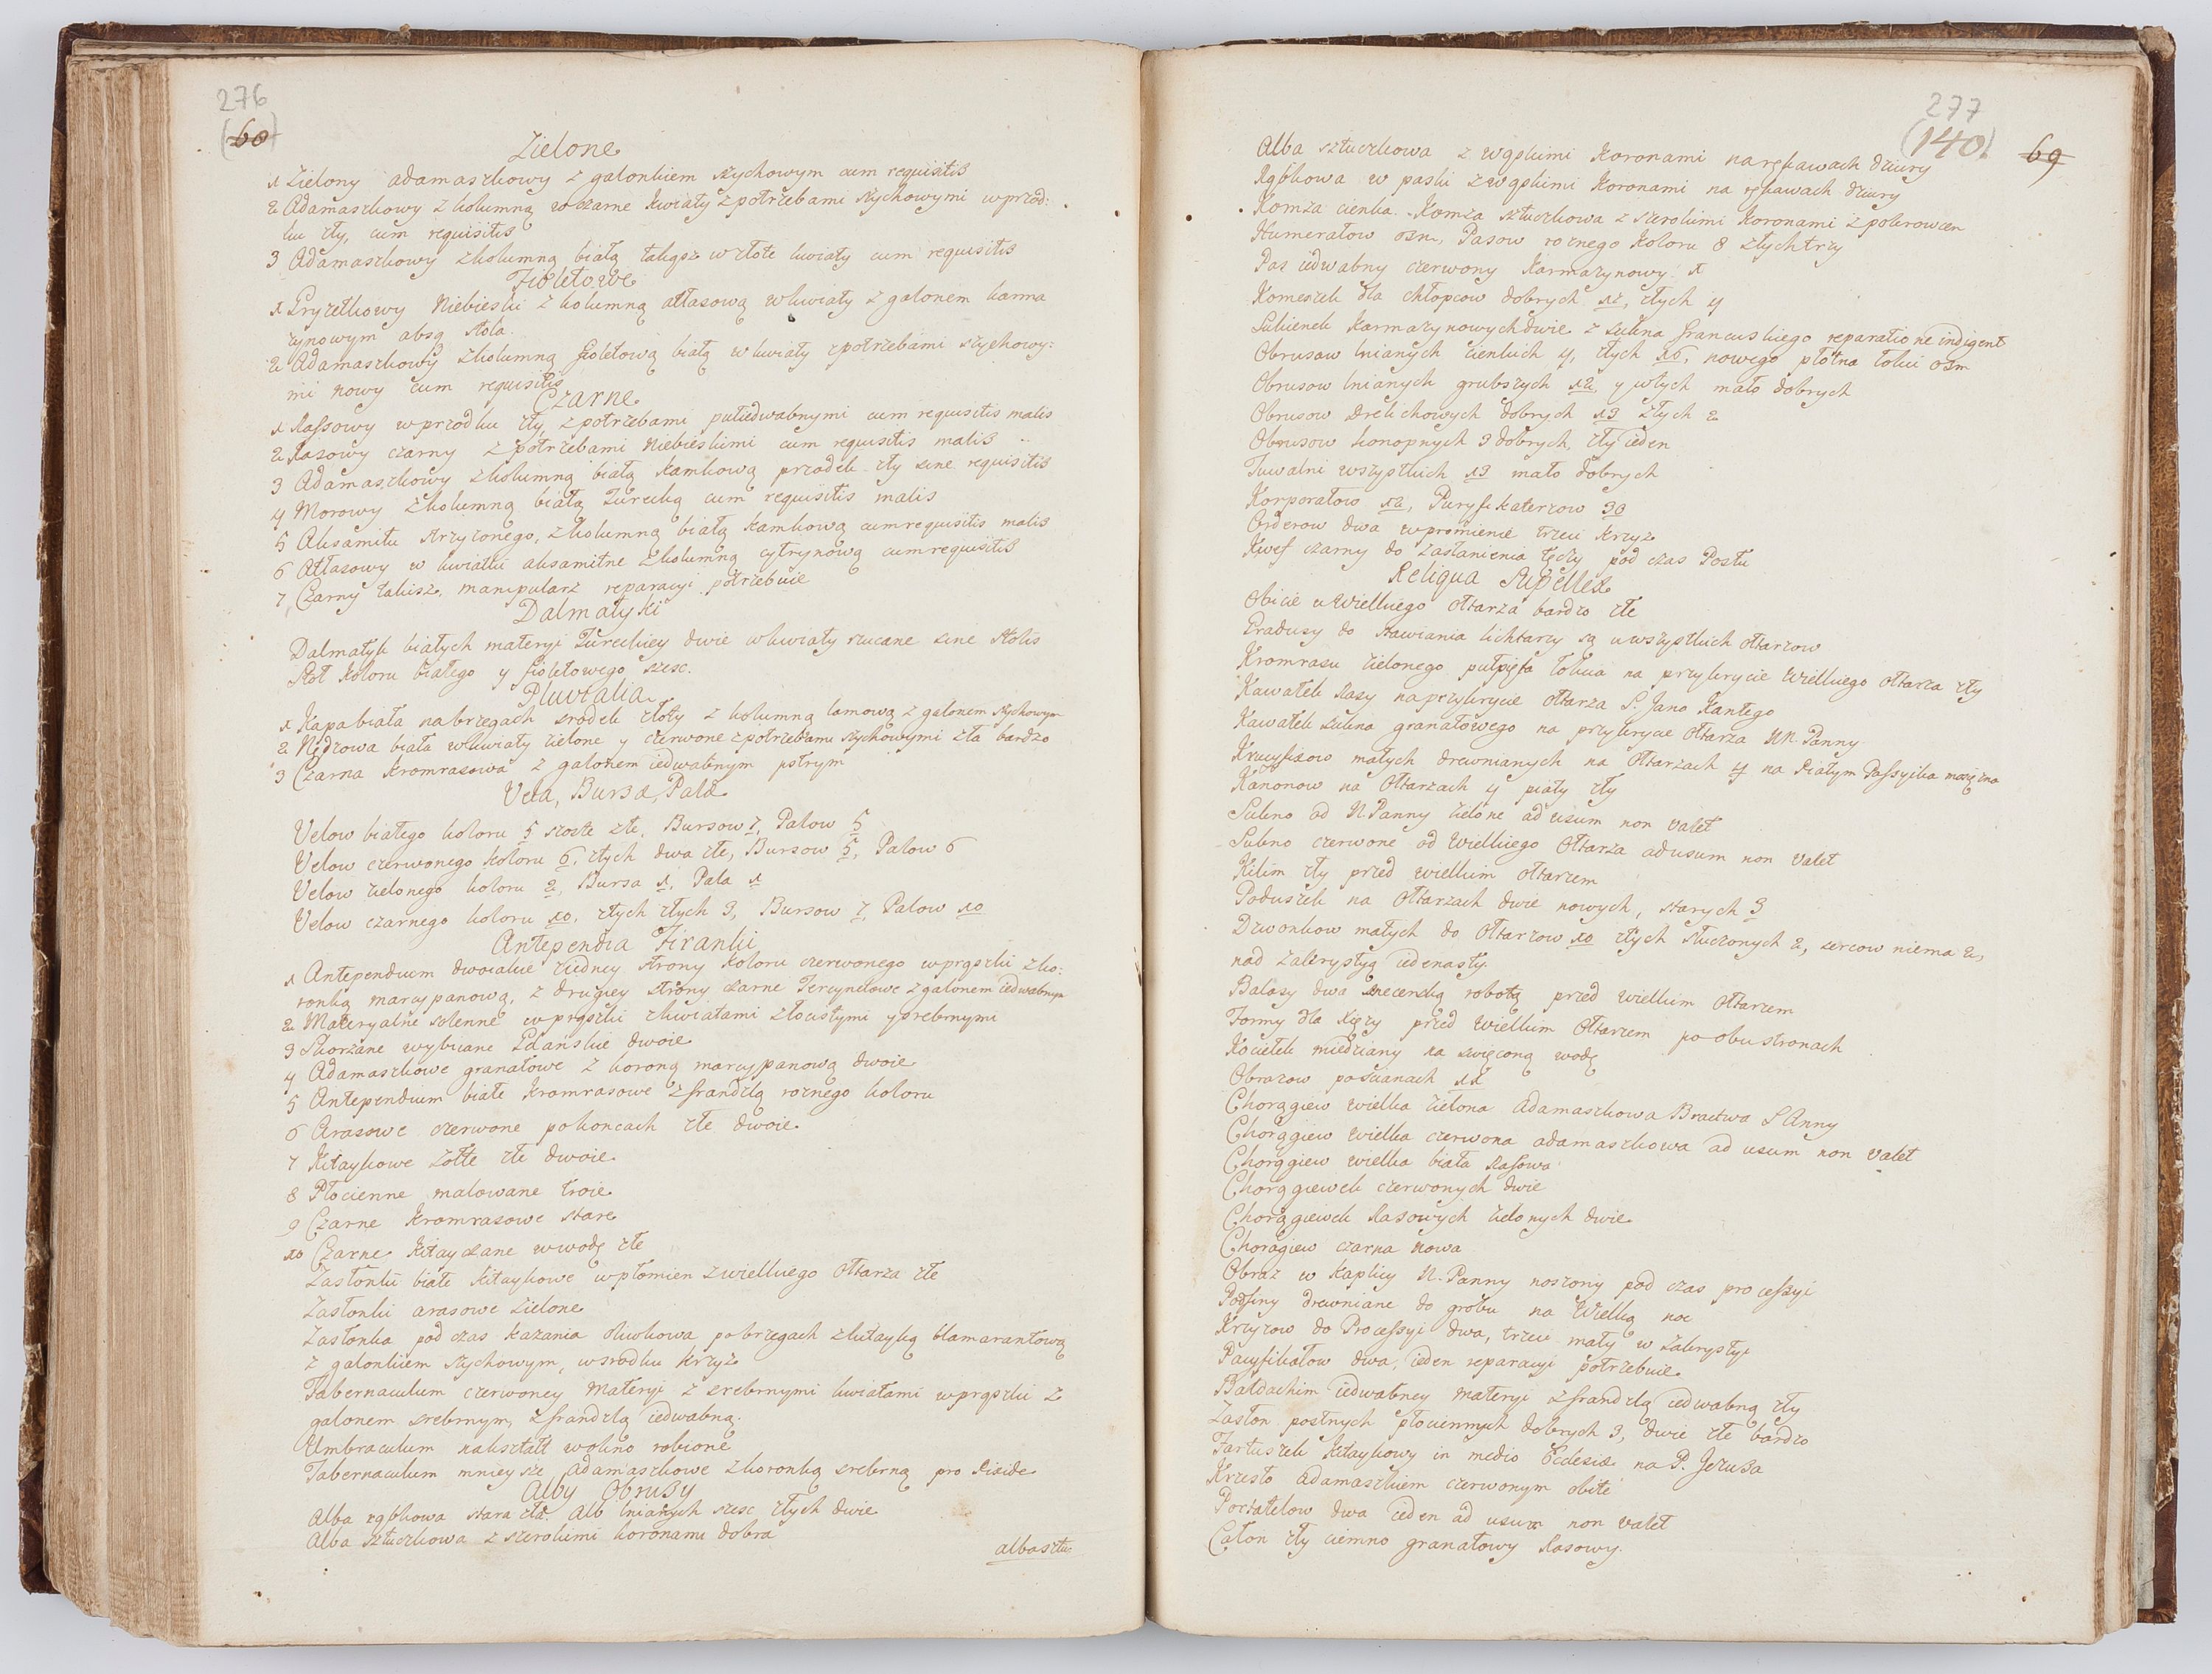 276
(60)
Zielone
1 Zielony adamaszkowy z galonkiem szychowym cum requisitis
2 Adamaszkowy z kolumną w czarne kwiaty z potrzebami szychowymi w przod:
ku zły, cum requisitis
3 Adamaszkowy z kolumną białą takąsz w złote kwiaty cum requisitis
Fioletowe
1 Gryzetkowy Niebieski z kolumną atłasową w kwiaty z galonem karma
zynowym absq stola.
2 Adamaszkowy z kolumną fioletową białą w kwiaty z potrzebami szychowy:
mi nowy cum requisitis
Czarne
1 Rassowy w przodku zły, z potrzebami pułiedwabnymi cum requisitis malis
2 Rasowy czarny z potrzebami Niebieskimi cum requisitis malis
3 Adamaszkowy z kolumną białą kamkową przodek zły sine requisitis
4 Morowy z kolumną białą Turecką cum requisitis malis
5 Aksamitu strzyżonego, z kolumną białą kamkową cum requisitis malis
6 Atłasowy w kwiatki aksamitne z kolumną cytrynową cum requisitis
7 Czarny takisz, manipularz reparacyi potrzebuie
Dalmatyki
Dalmatyk białych materyi Tureckiey dwie w kwiaty rzucane sine stolis
Stoł koloru białego y fioletowego szesc.
Pluvialia
1 Kapa biała na brzegach srodek złoty z kolumną lamową z galonem szychowym
2 Nędzowa biała w kwiaty zielone y czerwone z potrzebami szychowymi zła bardzo
3 Czarna kromrasowa z galonem iedwabnym pstrym
Vela, Bursæ, Palæ
Velow białego koloru 5 szoste złe, Bursow 7, Palow 5
Velow czerwonego koloru 6, złych dwa złe, Bursow 5, Palow 6
Velow zielonego koloru 2, Bursa 1, Pala 1
Velow czarnego koloru 10. złych złych 3, Bursow 7, Palow 10
Antependia Firanki
1 Antependium dwoiakie z iedney strony koloru czerwonego w prązki z ko:
ronką marcypanową, z drugiey strony czarne Tercynelowe z galonem iedwabnym
2 Materyalne solenne w prązki z kwiatami złocistymi y srebrnymi
3 Skorzane wybiiane Gdańskie dwoie
4 Adamaszkowe granatowe z koroną marcypanową dwoie
5 Antependium białe kromrasowe z frandzlą roznego koloru
6 Arasowe czerwone po koncach złe dwoie
7 Kitaykowe żołte złe dwoie
8 Płocienne malowane troie
9 Czarne kromrasowe stare
10 Czarne kitayczane w wodę złe
Zasłonki białe kitaykowe w płomien z wielkiego Ołtarza złe
Zasłonki arasowe zielone
Zasłonka pod czas kazania oliwkowa po brzegach z kitayką blamarantową
z galonkiem szychowym, w srodku krzyż
Tabernaculum czerwoney Materyi z srebrnymi kwiatami w prązki z
galonem srebrnym, z frandzlą iedwabną.
Umbraculum nakształt wołno robione
Tabernaculum mnieysze adamaszkowe z koronką srebrną pro Pixide
Alby Obrusy
Alba rąbkowa stara zła. Alb lnianych szesc złych dwie
Alba sztuczkowa z szerokimi koronami dobra
alba sztu
277
(140)
69
Alba sztuczkowa z wąskimi koronami na rękawach dziury
Rąbkowa w paski z wąskimi koronami na rękawach dziury
Komża cienka. Komża sztuczkowa z szerokimi koronami z pokrowcem
Humerałow osm, Pasow roznego koloru 8 złych trzy
Pas iedwabny czerwony karmazynowy 1
Komeszek dla chłopcow dobrych 12, złych 4
Sukienek karmazynowych dwie z sukna francuskiego reparatione indigent
Obrusow lnianych cienkich 4, złych 16, nowego płotna łokci osm
Obrusow lnianych grubszych 12 y złych mało dobrych
Obrusow Drelichowych dobrych 13 złych 2
Obrusow konopnych 3 dobrych, zły ieden
Tuwalni wszystkich 13 mało dobrych
Korporałow 12, Puryfikaterzow 30
Orderow dwa w promienie trzeci krzyż
Kwef czarny do zasłanienia tęczy pod czas Postu
Religua Supellex
Obicie u Wielkiego ołtarza bardzo złe
Gradusy do stawiania lichtarzy są u wszystkich ołtarzow
Kromrasu zielonego pułpięta łokcia na przykrycie Wielkiego ołtarza zły
Kawałek Rasy na przykrycie ołtarza S. Jana Kantego
Kawałek sukna granatowego na przykrycie Ołtarza NN. Panny
Krucyfixow małych drewnianych na Ołtarzach 4 na Piątym Passyika mosiężna
Kanonow na Ołtarzach 4 piąty zły
Sukno od N. Panny zielone ad usum non valet
Sukno czerwone od Wielkiego Ołtarza ad usum non valet
Kilim zły przed wielkim ołtarzem
Poduszek na Ołtarzach dwie nowych, starych 3
Dzwonkow małych do Ołtarzow 10 złych stłuczonych 2, sercow niema 2,
nad zakrystyą iedenasty.
Balasy dwa snycerską robotą przed wielkim Ołtarzem
Formy dla Xięży przed Wielkim Ołtarzem po obu stronach
Kociełek miedziany na swięconą wodę
Obrazow po scianach 11
Chorągiew wielka zielona Adamaszkowa Bractwa S Anny
Chorągiew wielka czerwona adamaszkowa ad usum non valet
Chorągiew wielka biała Rassowa
Chorągiewek czerwonych dwie
Chorągiewek Rasowych zielonych dwie
Chorągiew czarna nowa
Obraz w kaplicy N. Panny noszony pod czas processyi
drewniane do grobu na Wielką noc
Krzyżow do Processyi dwa, trzeci mały w zakrystyi
Pacyfikałow dwa, ieden reparacyi potrzebuie
Baldachim iedwabney materyi z frandzlą iedwabną zły
Zasłon postnych płociennych dobrych 3, dwie złe bardzo
Fartuszek kitaykowy in medio Ecclesiæ na P. Jezusa
Krzesło adamaszkiem czerwonym obite
Portatelow dwa ieden ad usum non valet
Całon zły ciemno granatowy Rasowy.